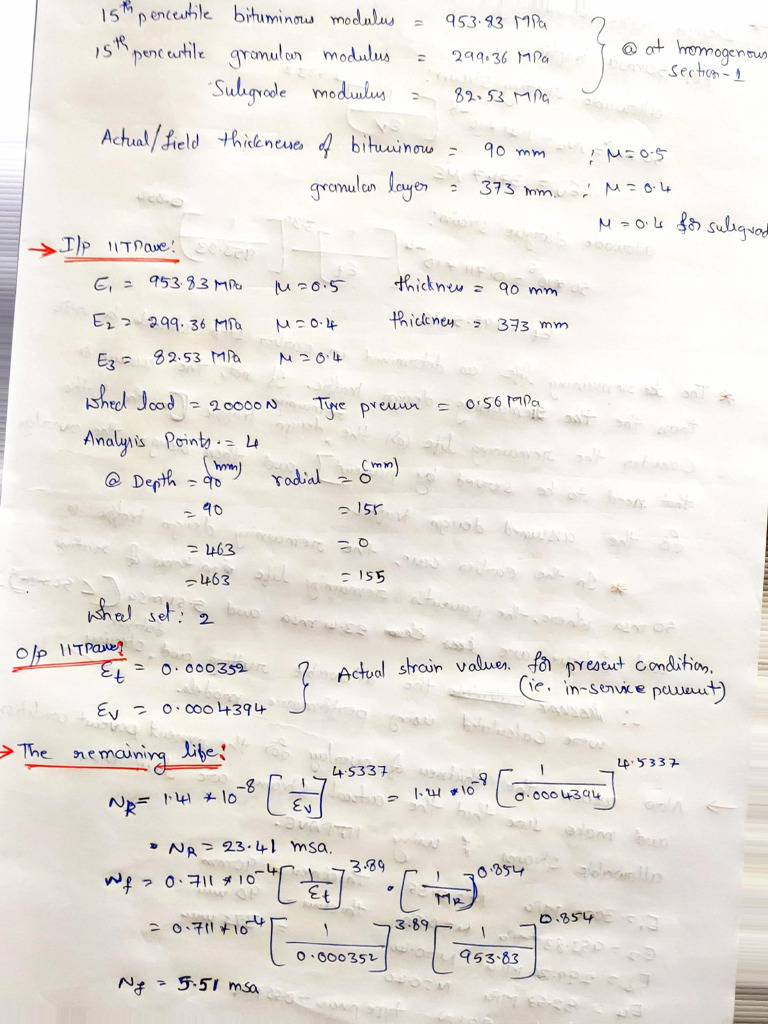 15th percentile bituminous modulus = 953.83 MPa
15th percentile granular modulus = 299.36 MPa
Subgrade modulus = 82.53 MPa
} @ at homogenous section-1
Actual/field thicknesses of bituminous = 90 mm ; μ=0.5
granular layer = 373 mm. ; μ = 0.4
μ = 0.4 for subgrad
→ I/p IITPave:
E1 = 953.83 MPa μ=0.5 thickness = 90 mm
E2 = 299.36 MPa μ=0.4 thickness = 373 mm
E3 = 82.53 MPa μ=0.4
Wheel load = 20000N Tyre pressure = 0.56 MPa
Analysis Points. = 4
@ Depth = 90 (mm) radial = 0 (mm)
= 90 = 155
= 463 = 0
= 463 = 155
Wheel set: 2
O/p IITPave:
Et = 0.000352
Ev = 0.0004394
} Actual strain values. for present condition. (ie. in-service pavement)
→ The remaining life:
NR = 1.41 * 10^-8 [1/Ev]^4.5337 = 1.41 * 10^-8 [1/0.0004394]^4.5337
• NR = 23.41 msa.
Nf = 0.711 * 10^-4 [1/Et]^3.89 * [1/MR]^0.854
= 0.711 * 10^-4 [1/0.000352]^3.89 [1/953.83]^0.854
Nf = 5.51 msa